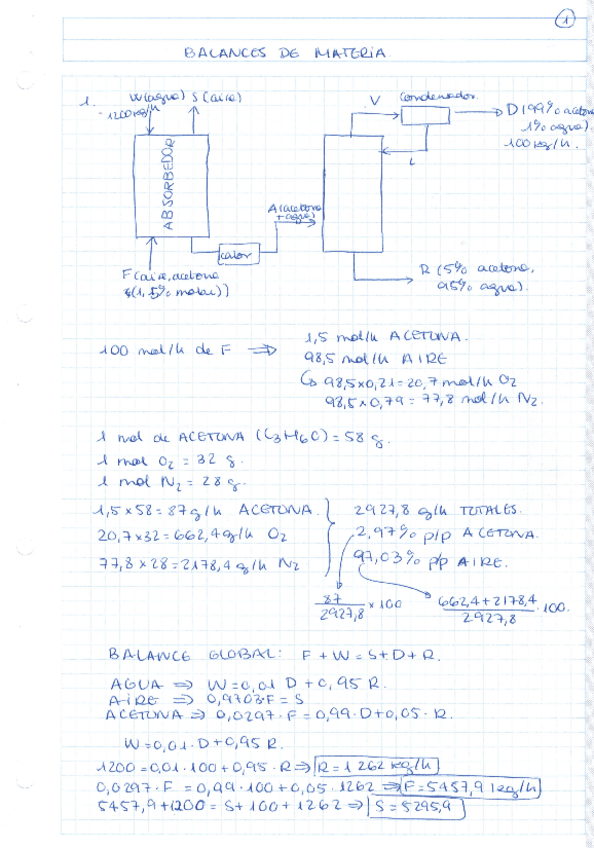 1
BALANCES DE MATERIA
1.
W(agua) S (aire)
1200 kg/h
ABSORBEDOR
F (aire, acetona
(1,5% molar))
calor
A (acetona
+ agua)
V
Condensador
L
D (99% acetona
1% agua)
100 kg/h.
R (5% acetona,
95% agua).
100 mol/h de F ⇒
1,5 mol/h ACETONA.
98,5 mol/h AIRE
↳ 98,5x0,21=20,7 mol/h O2
98,5x0,79=77,8 mol/h N2.
1 mol de ACETONA (C3H6O)=58 g.
1 mol O2 = 32 g.
1 mol N2 = 28 g.
1,5 x 58 = 87 g/h ACETONA
20,7x32=662,4 g/h O2
77,8 x 28=2178,4 g/h N2
2927,8 g/h TOTALES.
2,97% p/p ACETONA.
97,03% p/p AIRE.
87/2927,8 x 100
662,4+2178,4/2927,8 ·100.
BALANCE GLOBAL: F + W = S+D+R.
AGUA ⇒ W=0,01 D+0,95 R.
AIRE ⇒ 0,9703·F = S
ACETONA ⇒ 0,0297·F = 0,99·D+0,05·R.
W=0,01·D+0,95 R.
1200=0,01·100+0,95·R ⇒ R=1262 kg/h
0,0297·F = 0,99·100+0,05·1262 ⇒ F=5457,9 kg/h
5457,9+1200 = S+100+1262 ⇒ S=5295,9